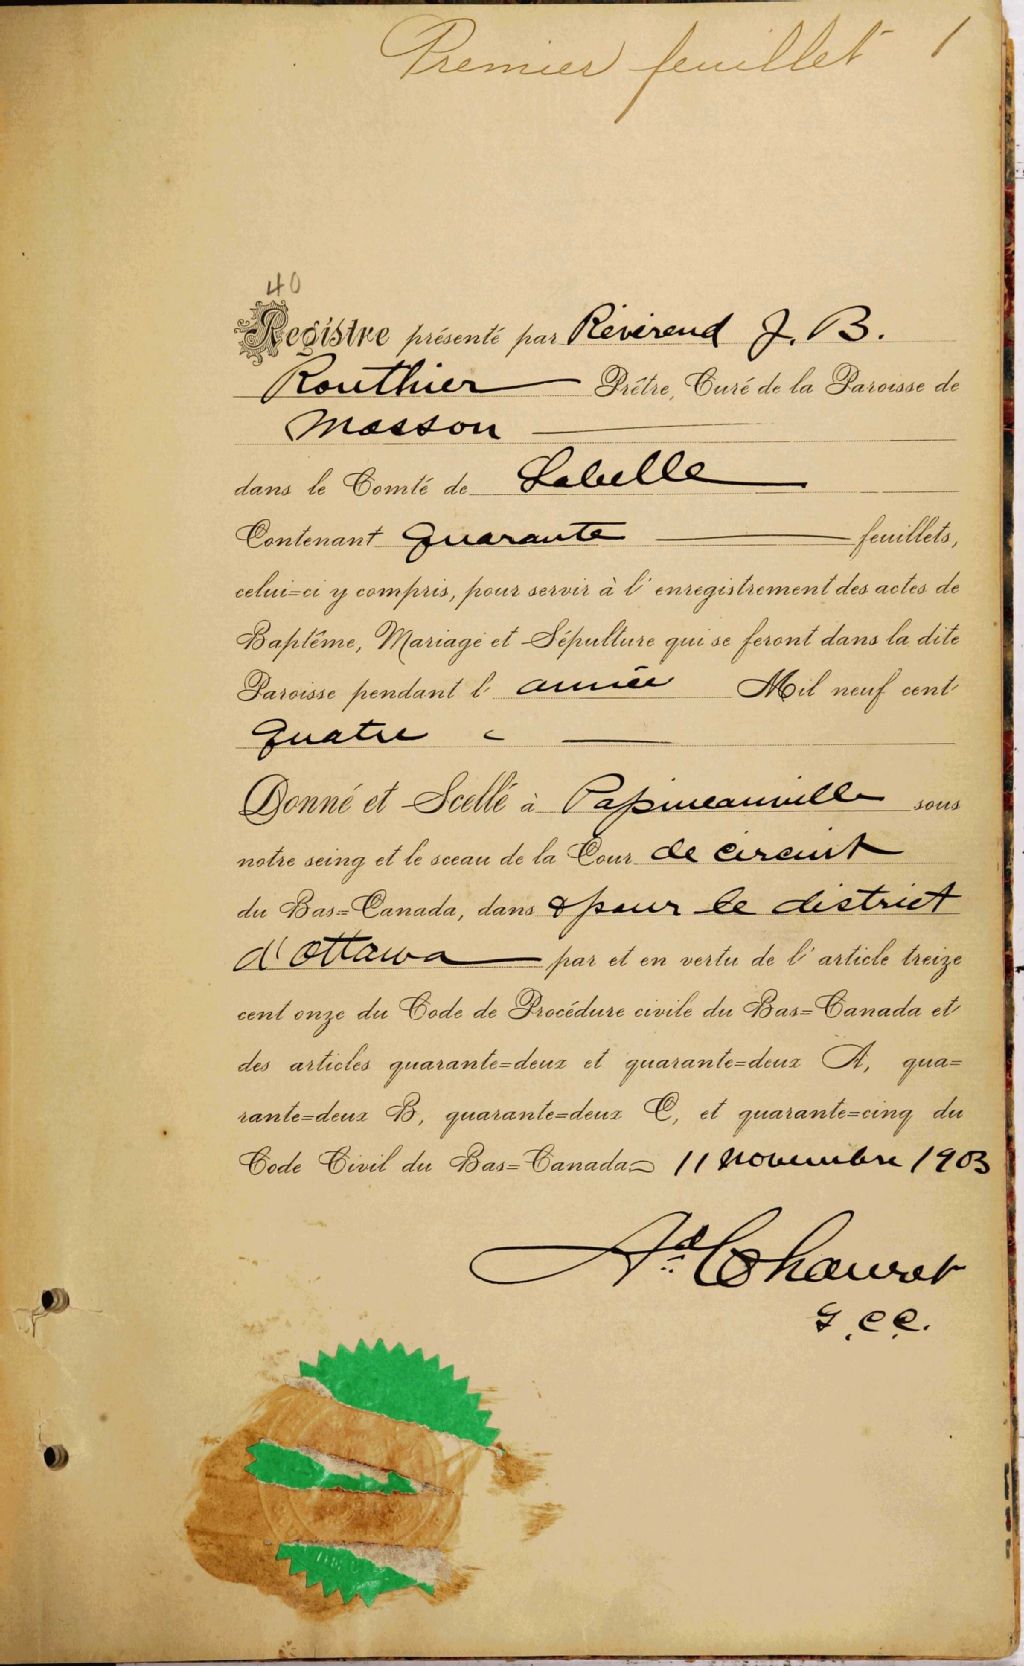 Premier feuillet 1
40
Registre présenté par Révérend J. B.
Routhier Prêtre, Curé de la Paroisse de
Masson
dans le Comté de Labelle
Contenant Quarante feuillets,
celui=ci y compris, pour servir à l'enregistrement des actes de
Baptême, Mariage et Sépulture qui se feront dans la dite
Paroisse pendant l'année Mil neuf cent
Quatre
Donné et Scellé à Papineauville sous
notre seing et le sceau de la Cour de circuit
du Bas=Canada, dans & pour le district
d'Ottawa par et en vertu de l'article treize
cent onze du Code de Procédure civile du Bas=Canada et
des articles quarante=deux et quarante=deux A, qua=
rante=deux B, quarante=deux C, et quarante=cinq du
Code Civil du Bas=Canada= 11 Novembre 1903
Ad. Chauret
G.C.C.